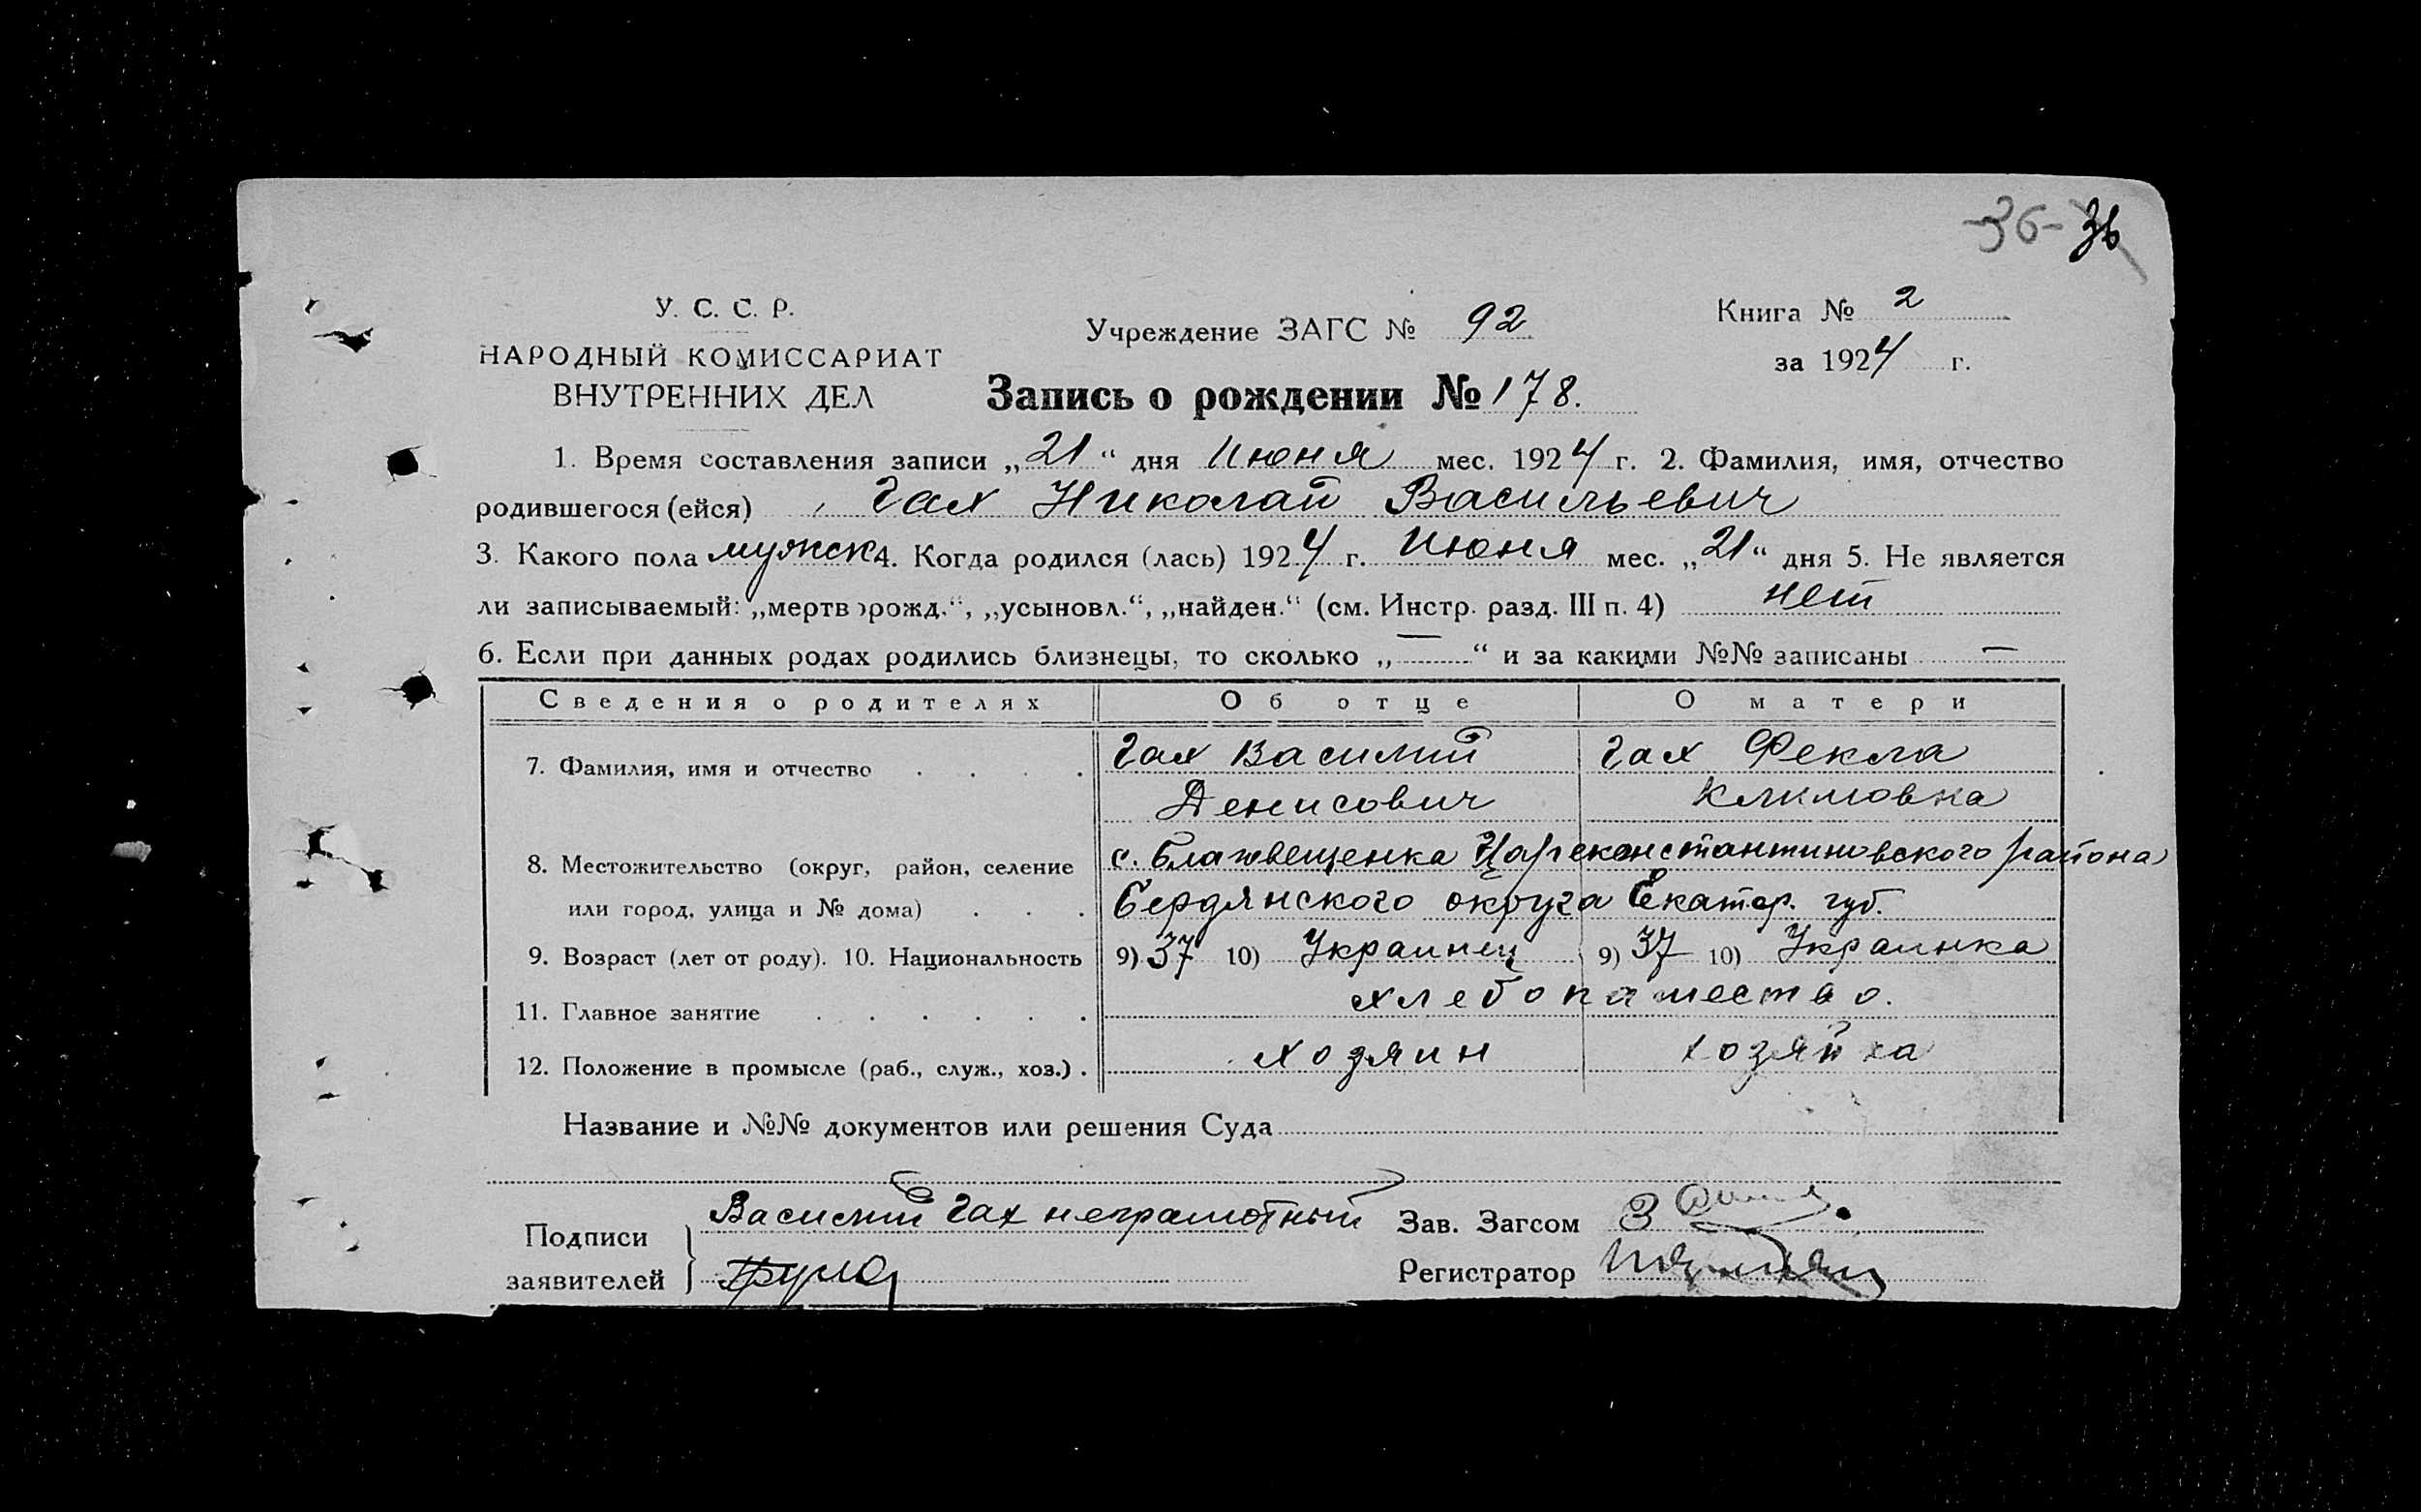 -36- 36
У. С. С. Р.
НАРОДНЫЙ КОМИССАРИАТ
ВНУТРЕННИХ ДЕЛ
Учреждение ЗАГС № 92
Книга № 2
за 1924 г.
Запись о рождении № 178.
1. Время составления записи „21“ дня Июня мес. 1924 г. 2. Фамилия, имя, отчество
родившегося (ейся) Гах Николай Васильевич
3. Какого пола мужск 4. Когда родился (лась) 1924 г. Июня мес. „21“ дня 5. Не является
ли записываемый: „мертворожд.“, „усыновл.“, „найден.“ (см. Инстр. разд. III п. 4) нет
6. Если при данных родах родились близнецы, то сколько „—“ и за какими №№ записаны —
Сведения о родителях Об отце О матери
7. Фамилия, имя и отчество Гах Василий Гах Фекла
Денисович Климовна
8. Местожительство (округ, район, селение с. Благовещенка Цареконстантиновского района
или город, улица и № дома) Бердянского округа Екатер. губ.
9. Возраст (лет от роду). 10. Национальность 9) 37 10) Украинец 9) 37 10) Украинка
11. Главное занятие хлебопашество.
12. Положение в промысле (раб., служ., хоз.) хозяин хозяйка
Название и №№ документов или решения Суда
Подписи заявителей Василий Гах неграмотный
Зав. Загсом
Регистратор